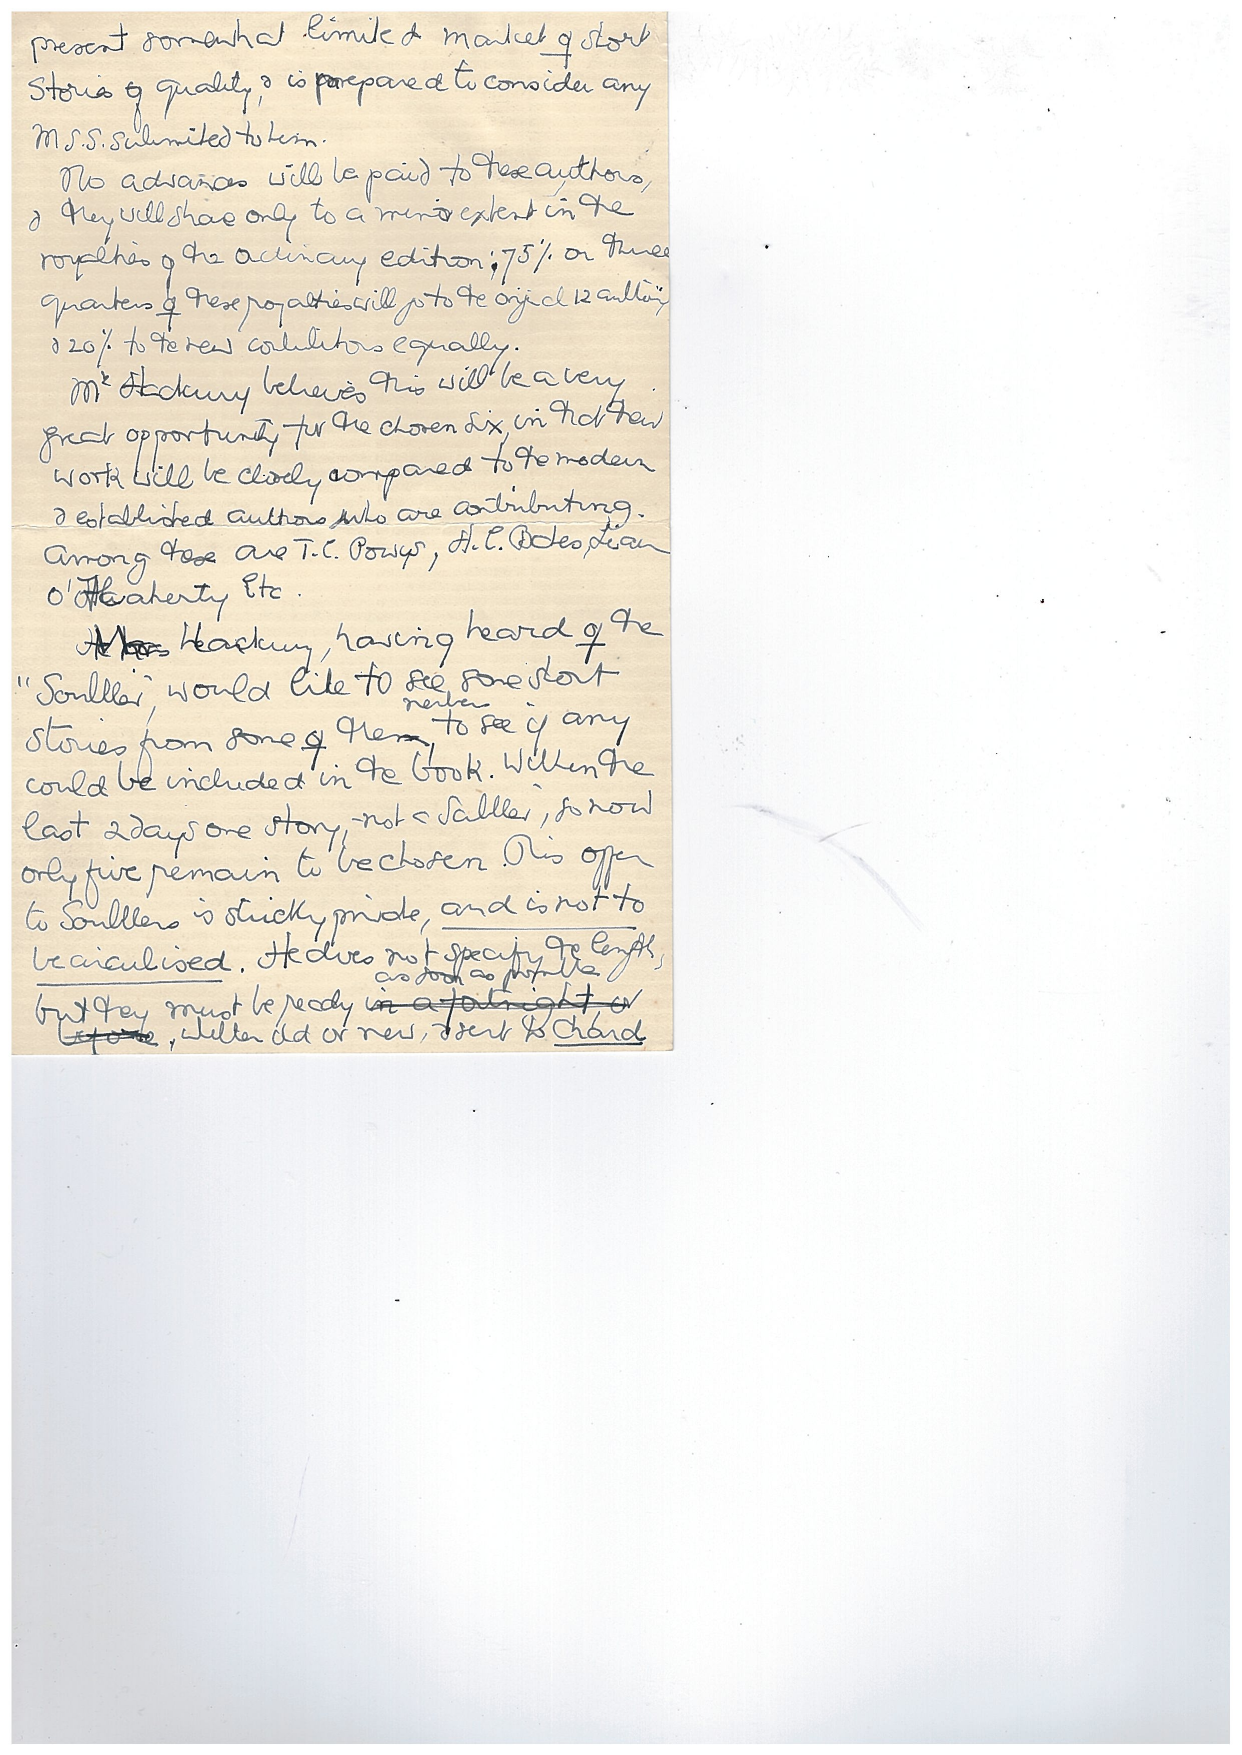 present somewhat limited market of short
stories of quality, & is prepared to consider any
M.S.S. submitted to him.
No advances will be paid to these authors,
& they will share only to a minor extent in the
royalties of the ordinary edition; 75% or three
quarters of these royalties will go to the original 12 authors
& 20% to the new contributors equally.
Mr believes this will be a very
great opportunity for the chosen six, in that their
work will be closely compared to the modern
& established authors who are contributing.
Among these are T.C. Powys, H.E. Bates, Liam
O'Flaherty Etc.
having heard of the
" would like to see some short
members
stories from some of them, to see if any
could be included in the book. Within the
last 2 days one story, not a so now
only five remain to be chosen. This offer
to is strictly private, and is not to
be circulised. He does not specify the length,
as soon as possible
but they must be ready in a fortnight, or
before, whether old or new, & sent to Chard